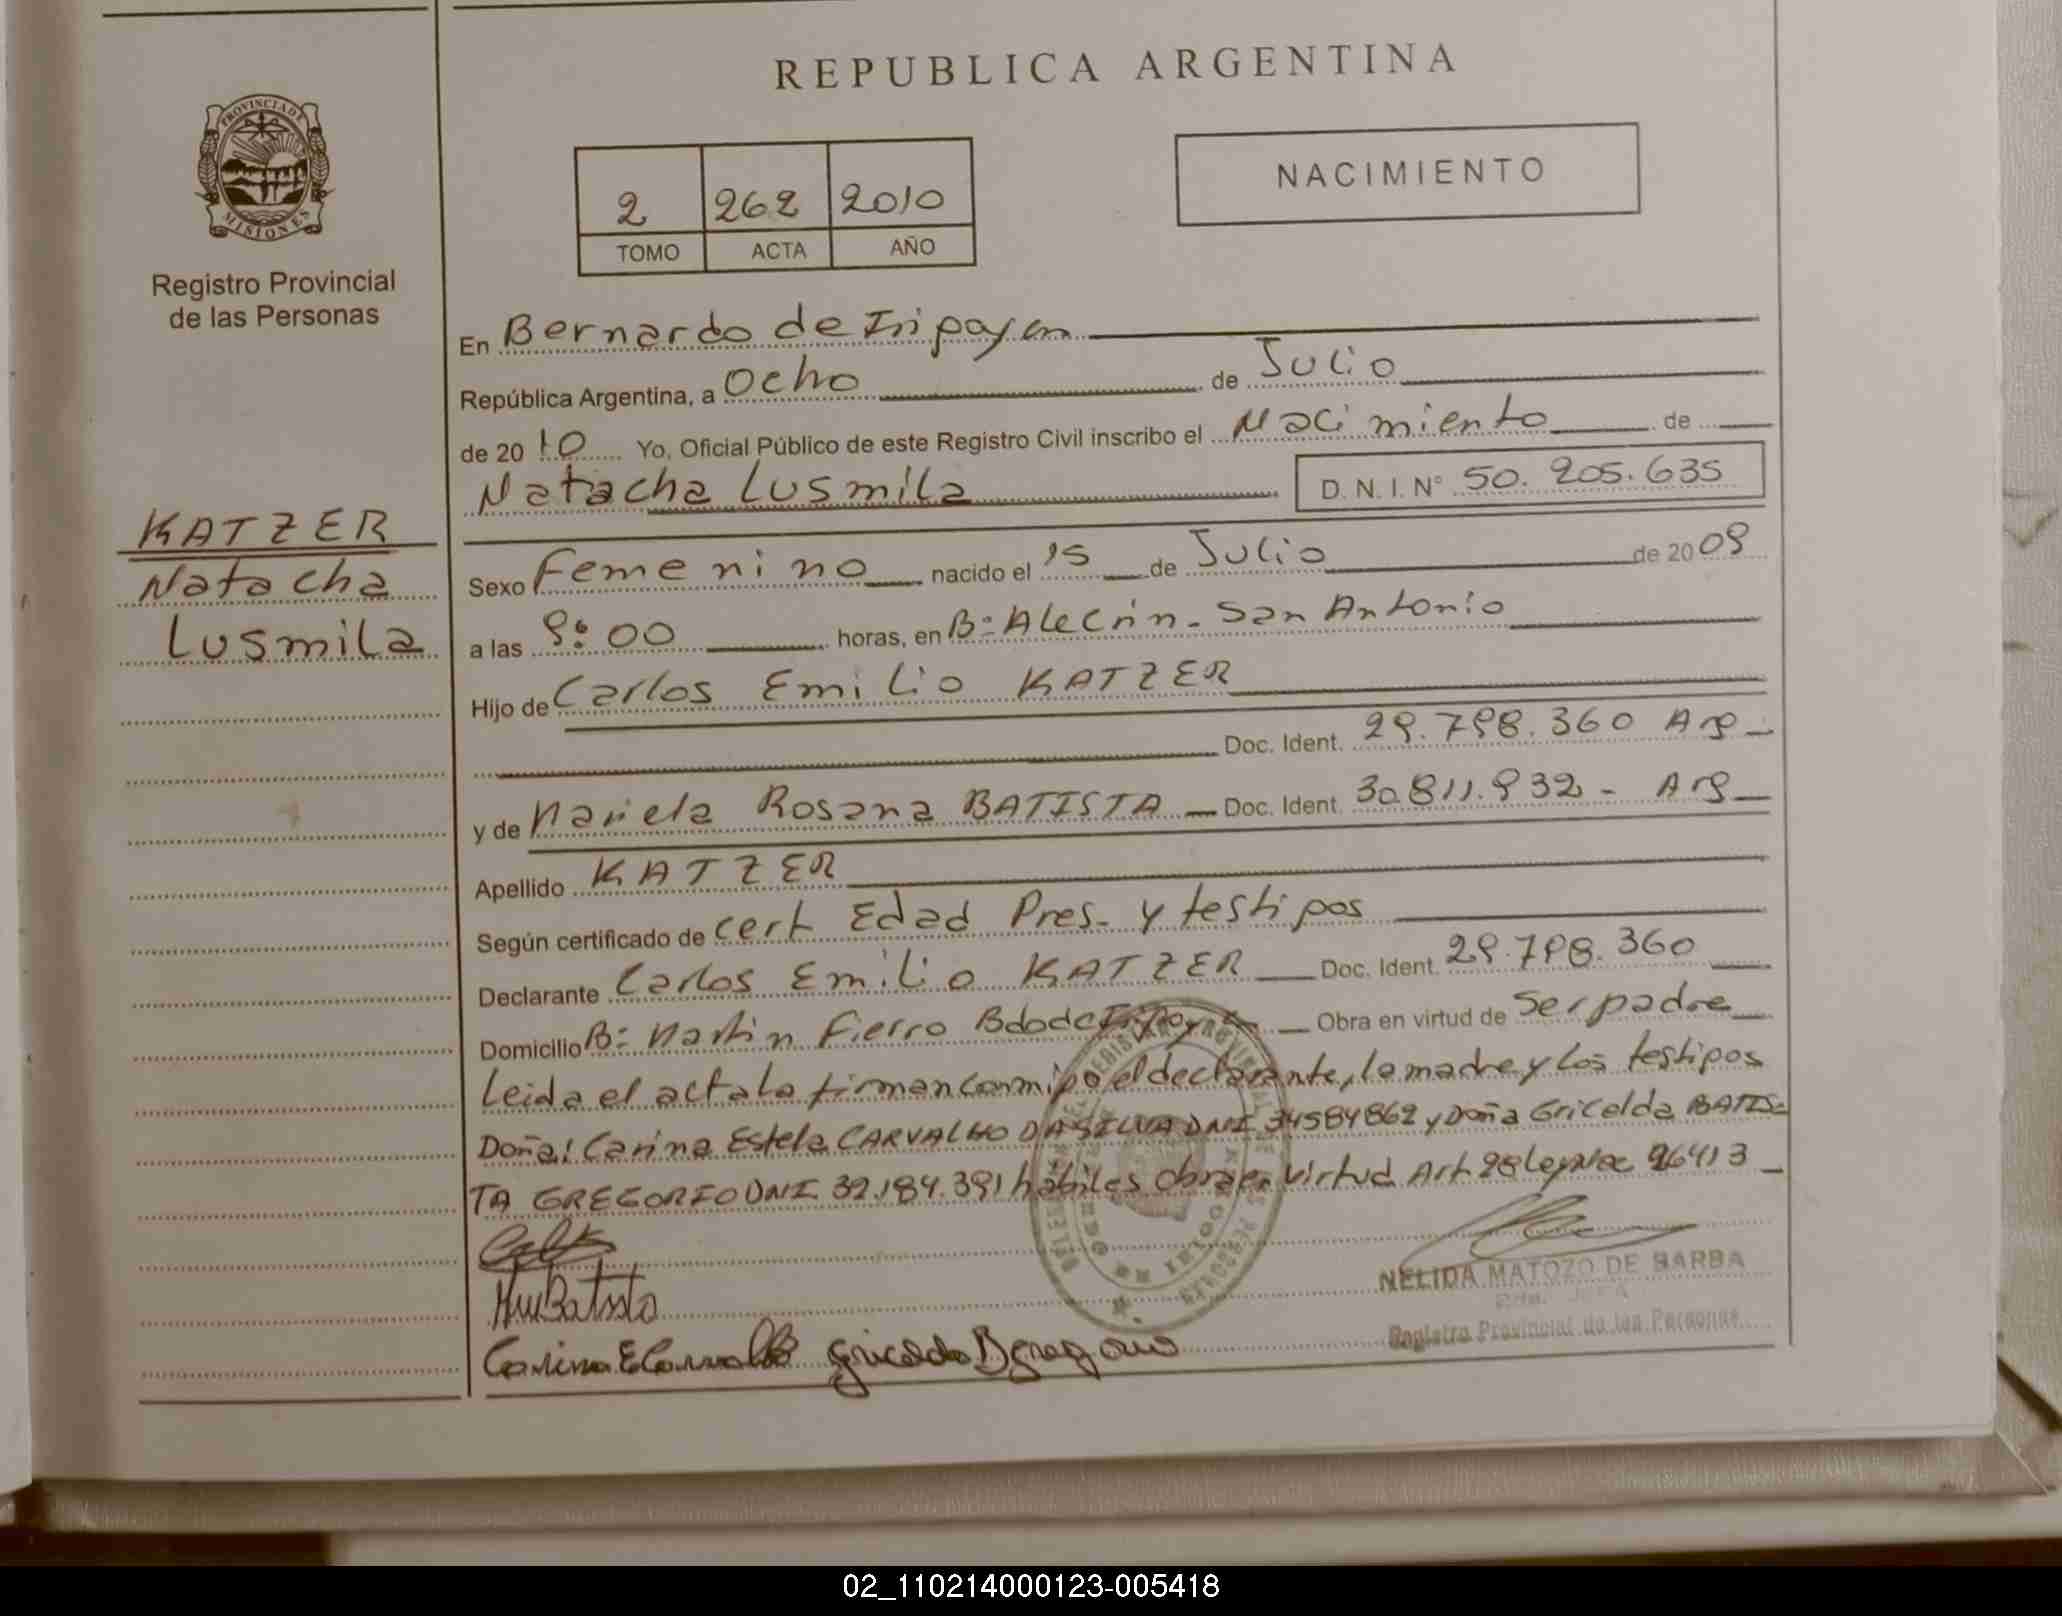 REPUBLICA ARGENTINA
PROVINCIA DE MISIONES
Registro Provincial
de las Personas
2 262 2010
TOMO ACTA AÑO
NACIMIENTO
KATZER
Natacha
Lusmila
En Bernardo de Irigoyen
República Argentina, a Ocho de Julio
de 2010 Yo, Oficial Público de este Registro Civil inscribo el Nacimiento de
Natacha Lusmila D. N. I. Nº 50.205.635
Sexo Femenino nacido el 15 de Julio de 2009
a las 9:00 horas, en Bº Alecrín - San Antonio
Hijo de Carlos Emilio KATZER
Doc. Ident. 29.798.360 Arg
y de Mariela Rosana BATISTA Doc. Ident. 30.811.932 - Arg
Apellido KATZER
Según certificado de cert Edad Pres. y testigos
Declarante Carlos Emilio KATZER Doc. Ident. 29.798.360
Domicilio Bº Martin Fierro Bdo de Irigoyen Obra en virtud de Ser padre
Leida el acta la firman conmigo el declarante, la madre y los testigos
Doña: Carina Estela CARVALHO DA SILVA DNI 34584862 y Doña Gricelda BATIS-
TA GREGORIO DNI 32.184.391 hábiles obra en virtud Art 28 Ley Nac 26413
NELIDA MATOZO DE BARBA
Registro Provincial de las Personas
02_110214000123-005418